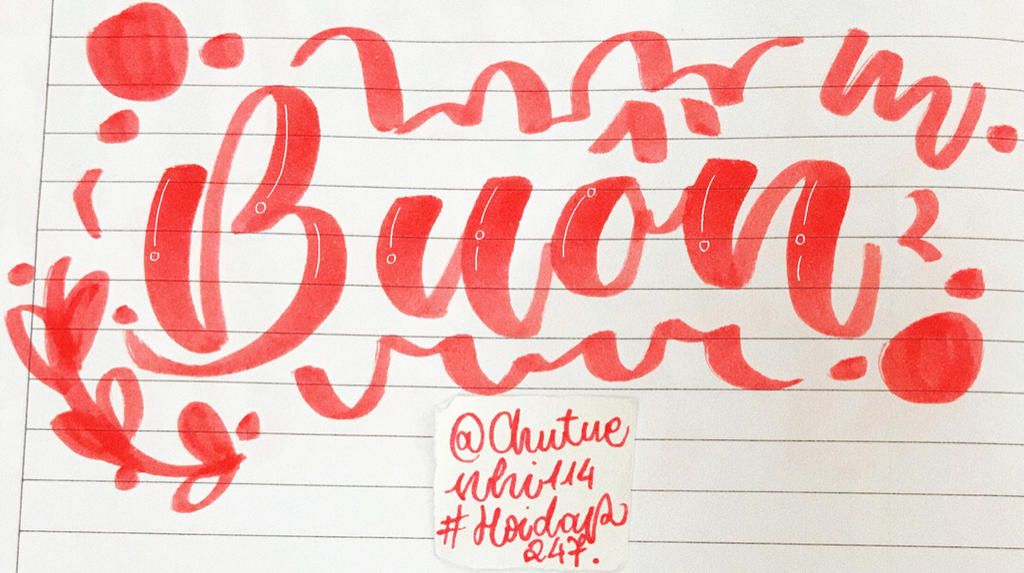 Buôn
@Chutue
nhi114
#Hoidap
247.